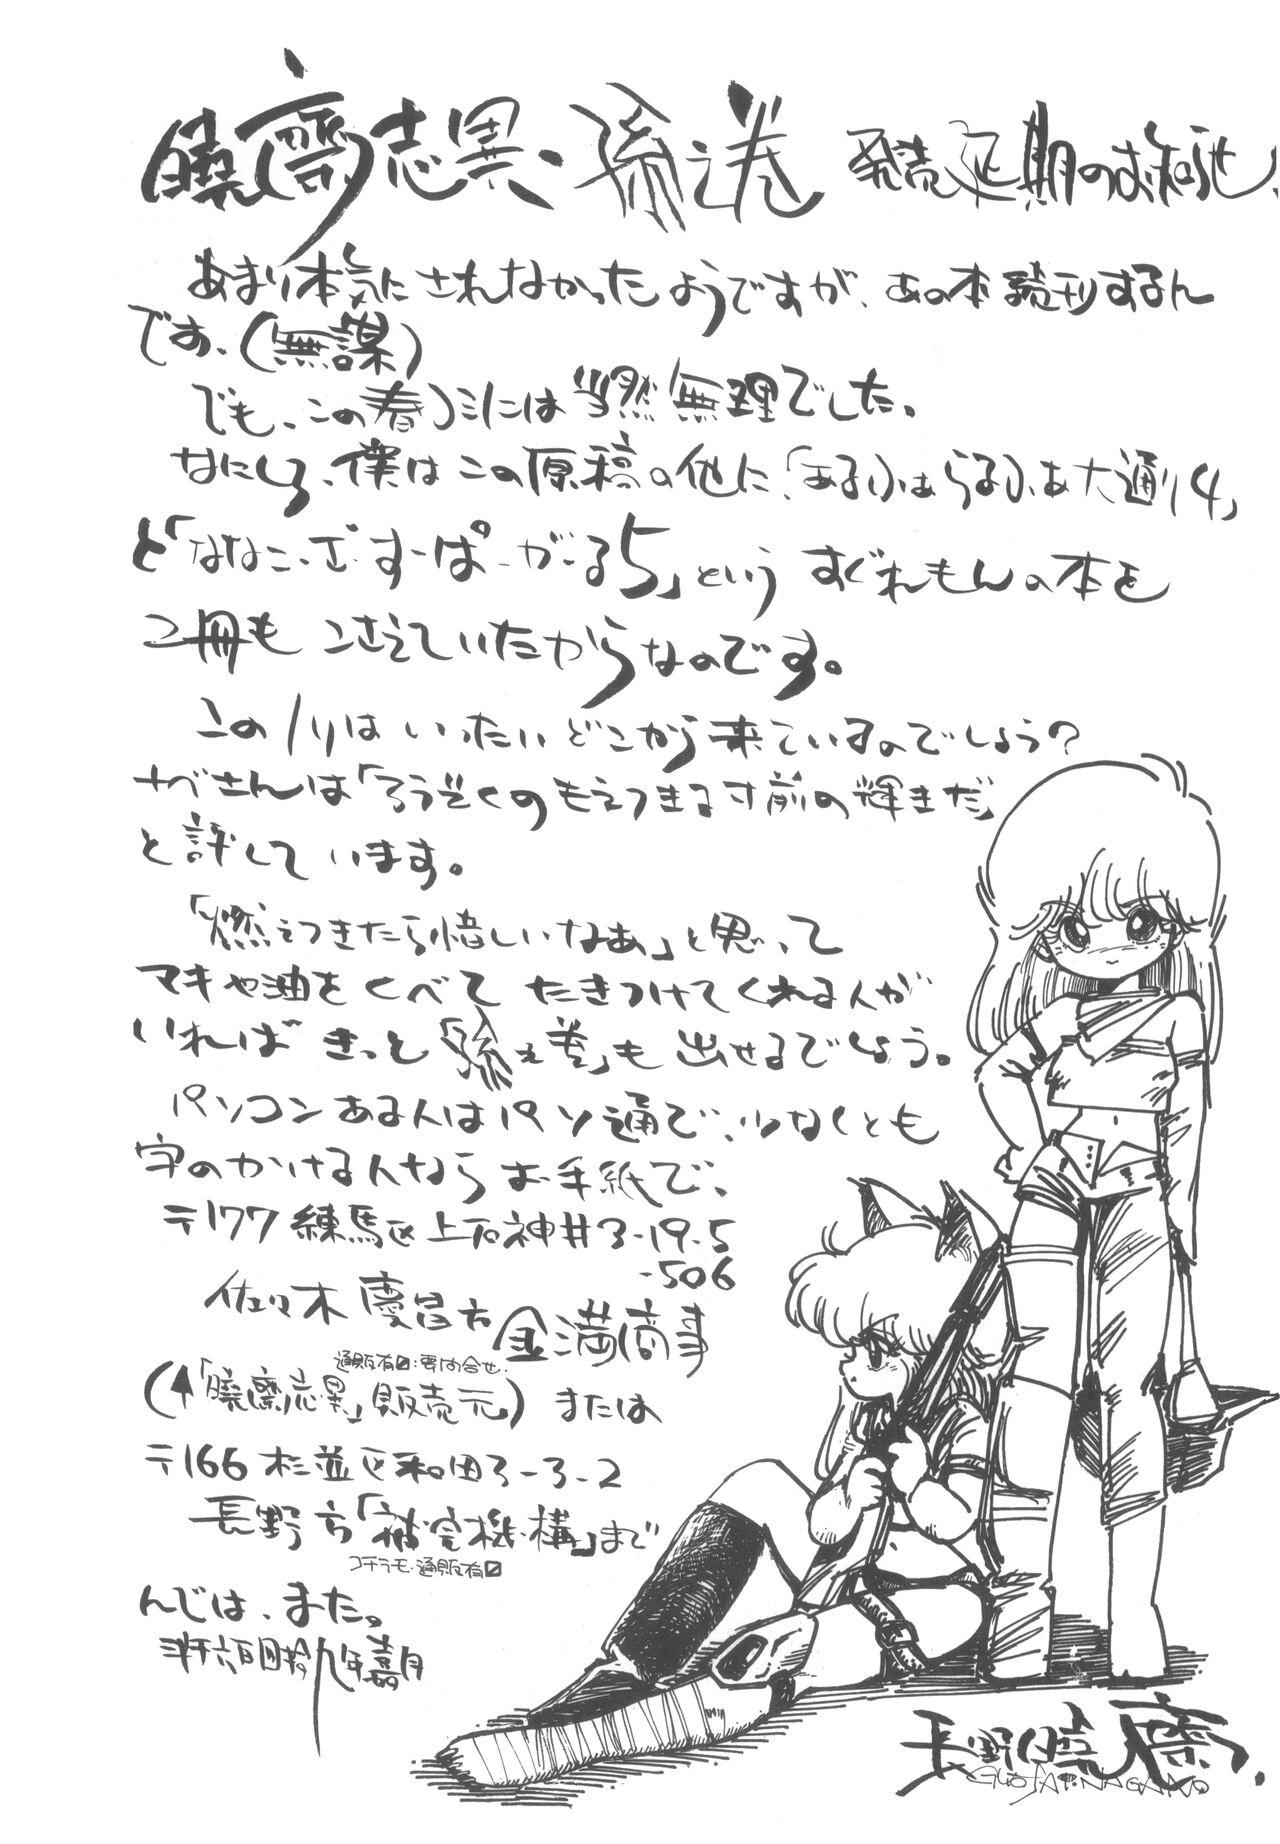 曉齋志異・孫之巻 発売延期のお知らせ、
あまり本気にされなかったようですが、あの本続刊するん
です、(無謀)
でも、この春コミには当然無理でした。
なにしろ、僕はこの原稿の他に、「あるふぁらるふぁ大通り4」
と「ななこ・ざ・すーぱーがーる5」というすぐれもんの本を
2冊もこさえていたからなのです。
このノリはいったいどこから来ているのでしょう?
ナベさんは「ろうそくのもえつきる寸前の輝きだ」
と評しています。
「燃えつきたら惜しいなあ」と思って
マキや油をくべてたきつけてくれる人が
いればきっと「孫之巻」も出せるでしょう。
パソコンある人はパソ通で、少なくとも
字のかける人ならお手紙で、
〒177 練馬区上石神井3-19-5
-506
佐々木慶昌方 金満商事
通販有〼:要問合せ.
(↑「曉齋志異」販売元) または
〒166 杉並区和田3-3-2
長野方「被害機構」まで
コチラモ・通販有〼
んでは、またっ
長野曉齋.
NAGANO